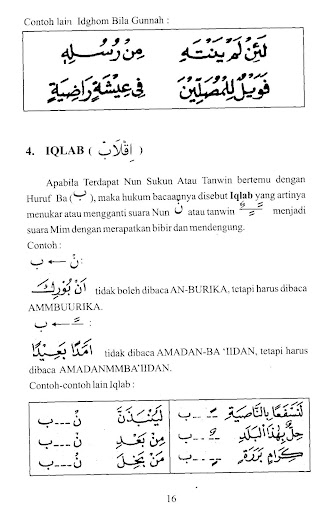 Contoh lain Idghom Bila Gunnah :
لَئِنْ لَمْ يَنْتَهِ مِنْ رُسُلِهِ
فَوَيْلٌ لِلْمُصَلِّيْنَ فِى عِيْشَةٍ رَاضِيَةٍ
4. IQLAB ( إِقْلَابْ )
Apabila Terdapat Nun Sukun Atau Tanwin bertemu dengan
Huruf Ba ( ب ), maka hukum bacaannya disebut Iqlab yang artinya
menukar atau mengganti suara Nun نْ atau tanwin ـًـٍـٌ menjadi
suara Mim dengan merapatkan bibir dan mendengung.
Contoh :
نْ ← ب :
اَنْ بُوْرِكَ tidak boleh dibaca AN-BURIKA, tetapi harus dibaca
AMMBUURIKA.
ـًـٍـٌ ← ب :
اَمَدًا بَعِيْدًا tidak dibaca AMADAN-BA 'IIDAN, tetapi harus
dibaca AMADANMMBA'IIDAN.
Contoh-contoh lain Iqlab :
لَنَسْفَعًا بِالنَّاصِيَةِ ـً---ب لَيُنْبَذَنَّ نْ---ب
حِلٌّ بِهٰذَا الْبَلَدِ ـٌ---ب مِنْ بَعْدِ نْ---ب
كِرَامٍ بَرَرَةٍ ـٍ---ب مَنْ بَخِلَ نْ---ب
16